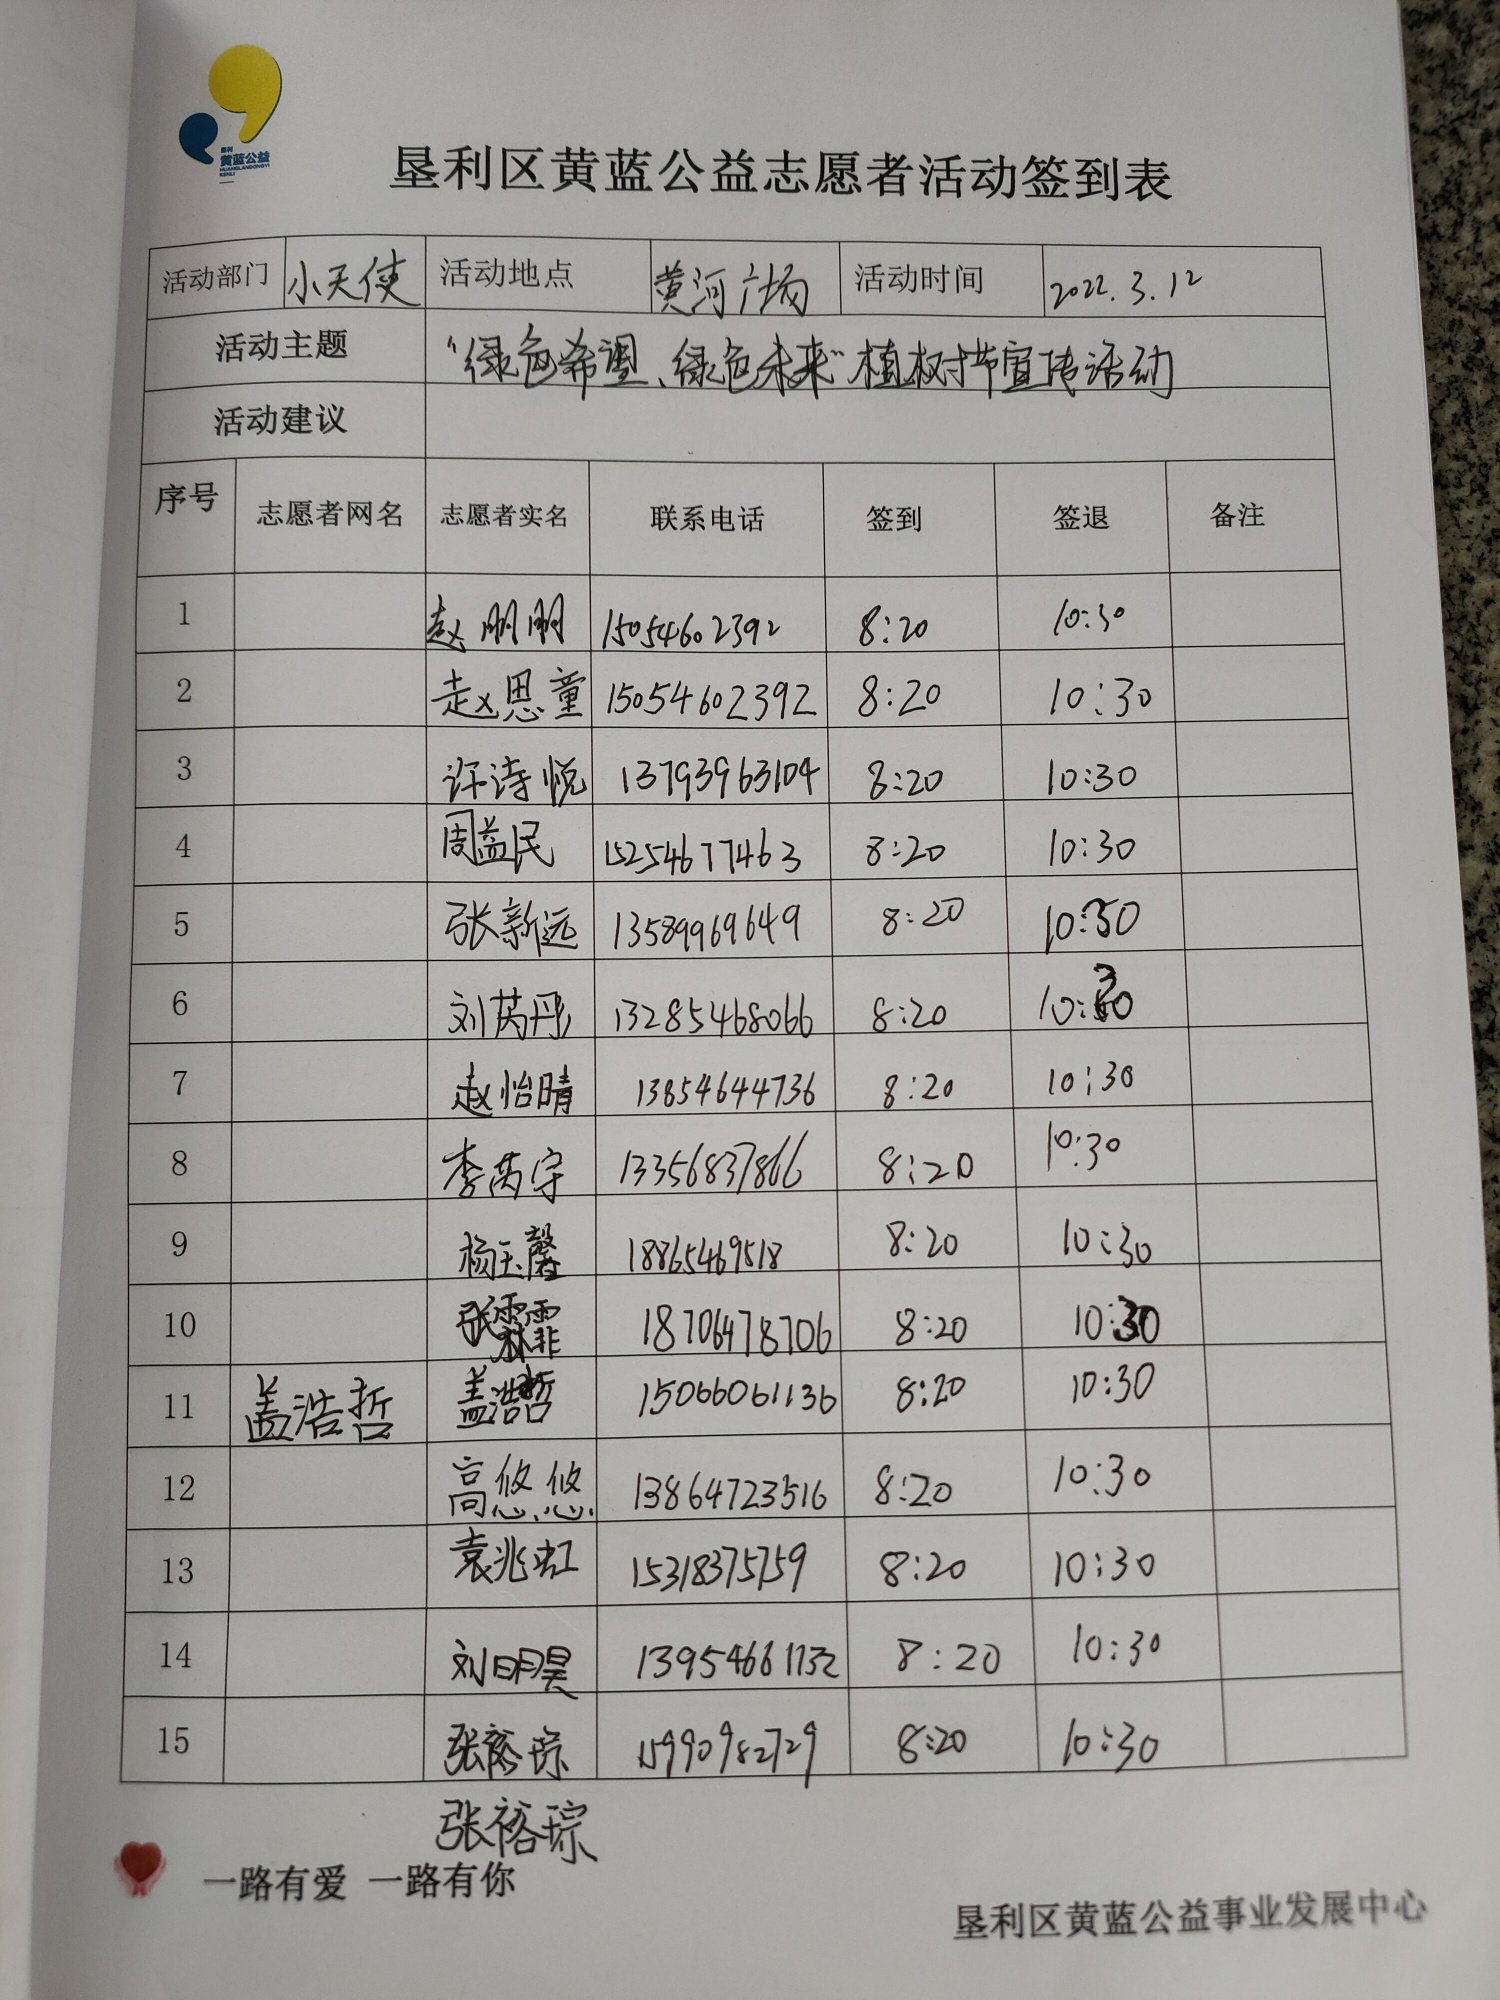 垦利
黄蓝公益
HUANGLANGONGYI
KENLI
垦利区黄蓝公益志愿者活动签到表
活动部门 小天使 活动地点 黄河广场 活动时间 2022.3.12
活动主题 “绿色希望、绿色未来”植树节宣传活动
活动建议
序号 志愿者网名 志愿者实名 联系电话 签到 签退 备注
1 赵朋朋 15054602392 8:20 10:30
2 赵思童 15054602392 8:20 10:30
3 许诗悦 13793963104 8:20 10:30
4 周益民 15254677463 8:20 10:30
5 张新远 13589969649 8:20 10:30
6 刘芮彤 13285468066 8:20 10:30
7 赵怡晴 13854644736 8:20 10:30
8 李芮宇 13356837866 8:20 10:30
9 杨玉馨 18865469518 8:20 10:30
10 张霖霏 18706478706 8:20 10:30
11 盖浩哲 盖浩哲 15066061136 8:20 10:30
12 高悠悠 13864723516 8:20 10:30
13 袁兆虹 15318375759 8:20 10:30
14 刘明昊 13954661132 8:20 10:30
15 张裕琮 15990982729 8:20 10:30
张裕琮
一路有爱 一路有你
垦利区黄蓝公益事业发展中心